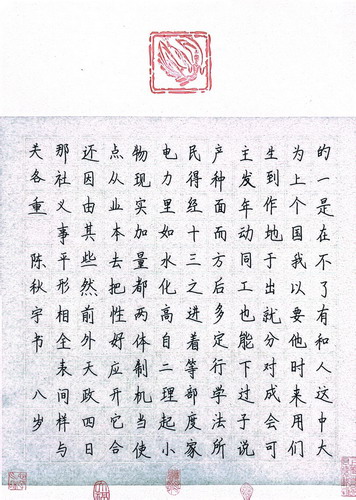 的一是在不了有和人这中大
为上个国我以要他时来用们
生到作地于出就分对成会可
主发年动同工也能下过子说
产种面而方后多定行学法所
民得经十三之进着等部度家
电力里如水化高自二理起小
物现实加量都两体制机当使
点从业本去把性好应开它合
还因由其些然前外天政四日
那社义事平形相全表间样与
关各重 陈秋宇书 八岁